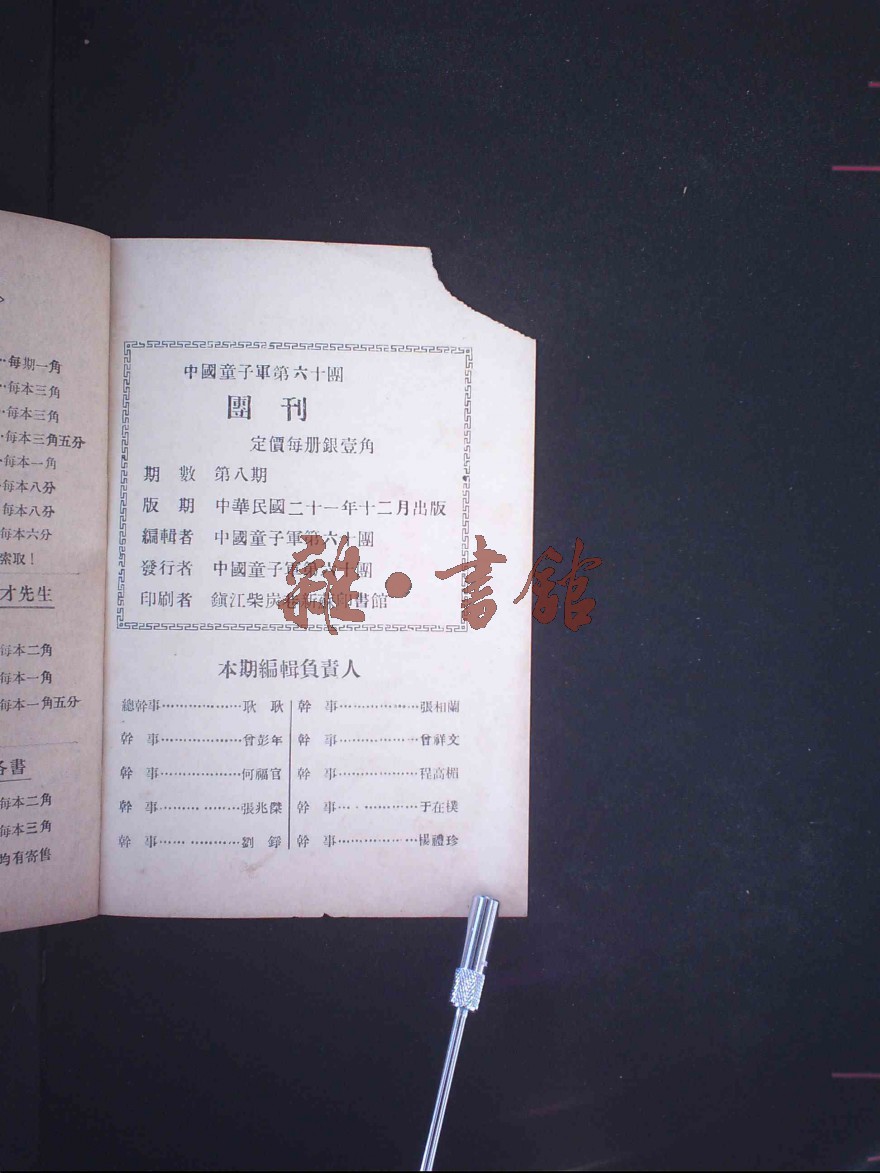 每期一角
每本三角
每本三角
每本三角五分
每本一角
每本八分
每本八分
每本六分
索取！
才先生
每本二角
每本一角
每本一角五分
各書
每本二角
每本三角
均有寄售
中國童子軍第六十團
團刊
定價每册銀壹角
期數 第八期
版期 中華民國二十一年十二月出版
編輯者 中國童子軍第六十團
發行者 中國童子軍第六十團
印刷者 鎭江柴炭巷新 印書館
雜·書館
本期編輯負責人
總幹事………………耿耿 幹事………………張相蘭
幹事………………曾彭年 幹事………………曾祥文
幹事………………何福官 幹事………………程高楣
幹事………………張兆傑 幹事………………于在樸
幹事………………劉錚 幹事………………楊禮珍